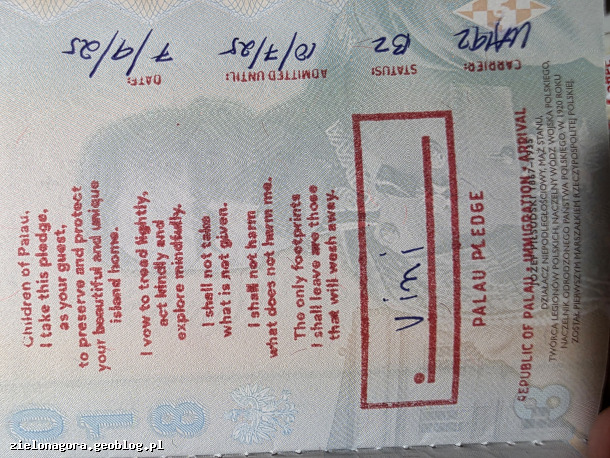 Children of Palau,
I take this pledge,
as your guest,
to preserve and protect
your beautiful and unique
island home.
I vow to tread lightly,
act kindly and
explore mindfully.
I shall not take
what is not given.
I shall not harm
what does not harm me.
The only footprints
I shall leave are those
that will wash away.
Vini
PALAU PLEDGE
REPUBLIC OF PALAU IMMIGRATION ARRIVAL
CARRIER: UA192
STATUS: B2
ADMITTED UNTIL: 10/7/25
DATE: 7/9/25
JÓZEF PIŁSUDSKI 1867-1935
DZIAŁACZ NIEPODLEGŁOŚCIOWY, MĄŻ STANU,
TWÓRCA LEGIONÓW POLSKICH, NACZELNY WÓDZ WOJSKA POLSKIEGO,
NACZELNIK ODRODZONEGO PAŃSTWA POLSKIEGO. W 1920 ROKU
ZOSTAŁ PIERWSZYM MARSZAŁKIEM RZECZYPOSPOLITEJ POLSKIEJ.
5
018
zielonagora.geoblog.pl